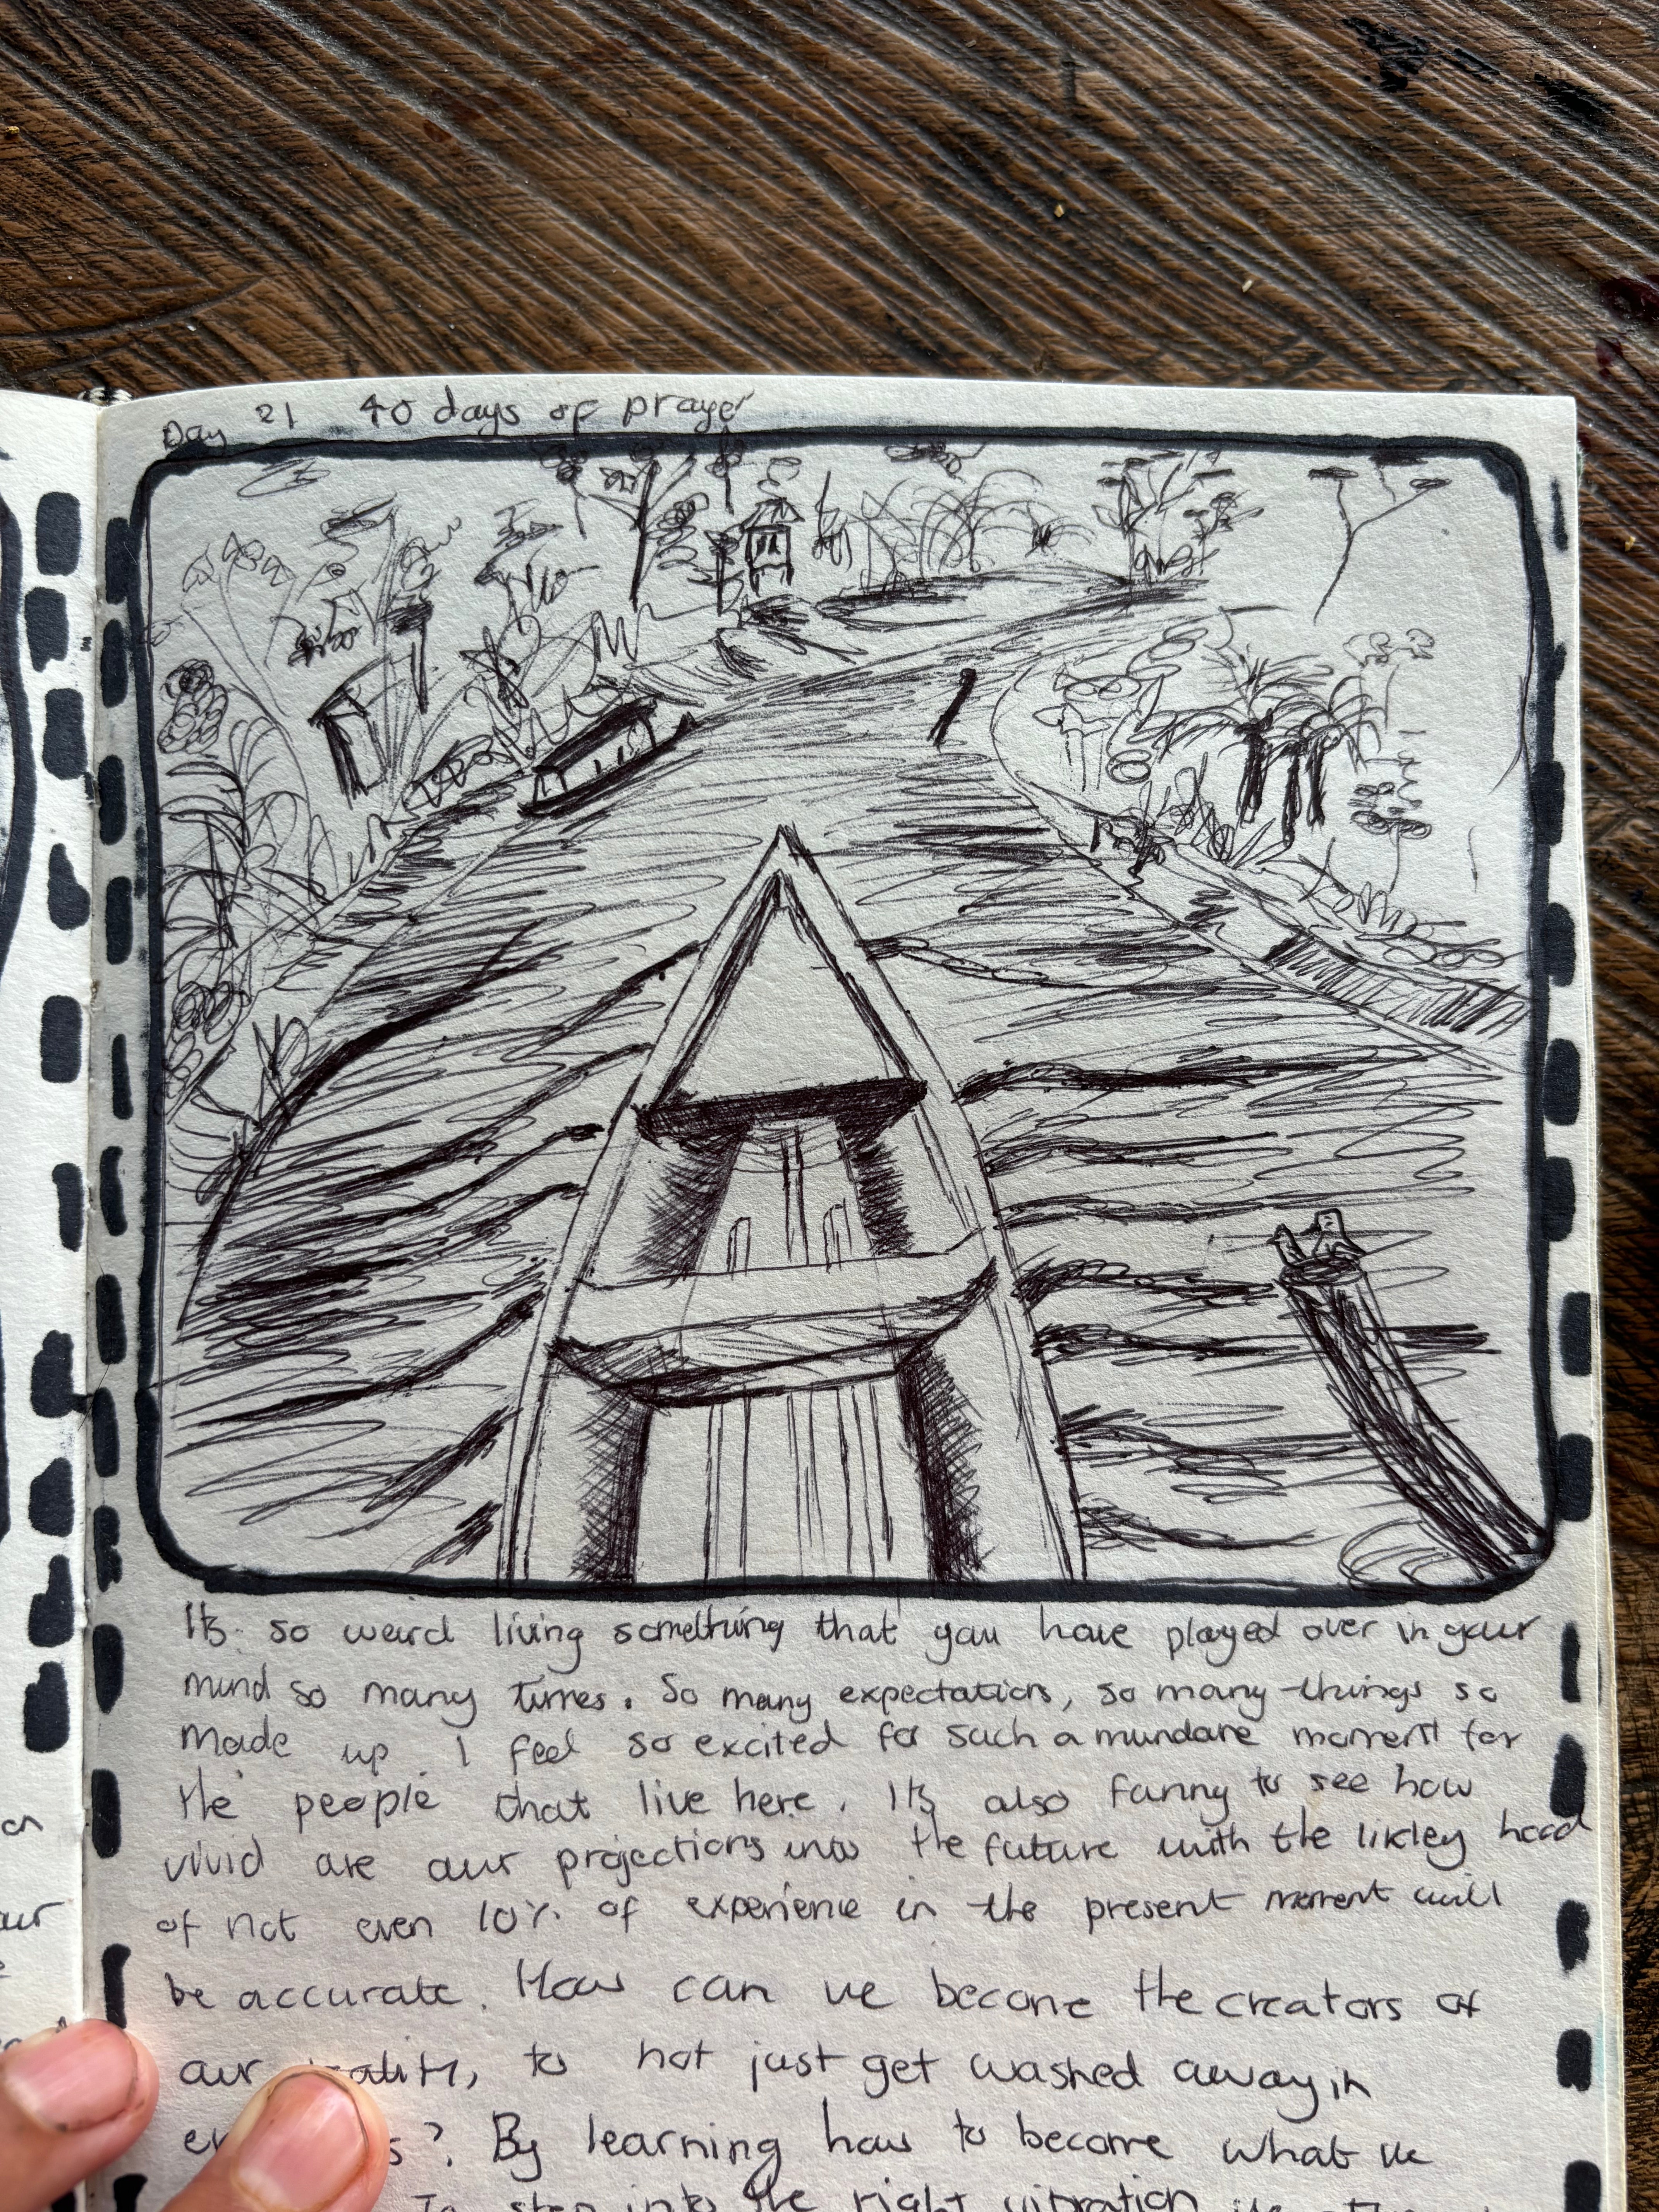 Day 21 40 days of prayer
Its so weird living something that you have played over in your
mind so many times. So many expectations, so many things so
made up. I feel so excited for such a mundane moment for
the people that live here. Its also funny to see how
vivid are our projections into the future with the likley hood
of not even 10% of experience in the present moment will
be accurate. How can we become the creators of
our to not just get washed away in
? By learning how to become what we
To step into the right vibration